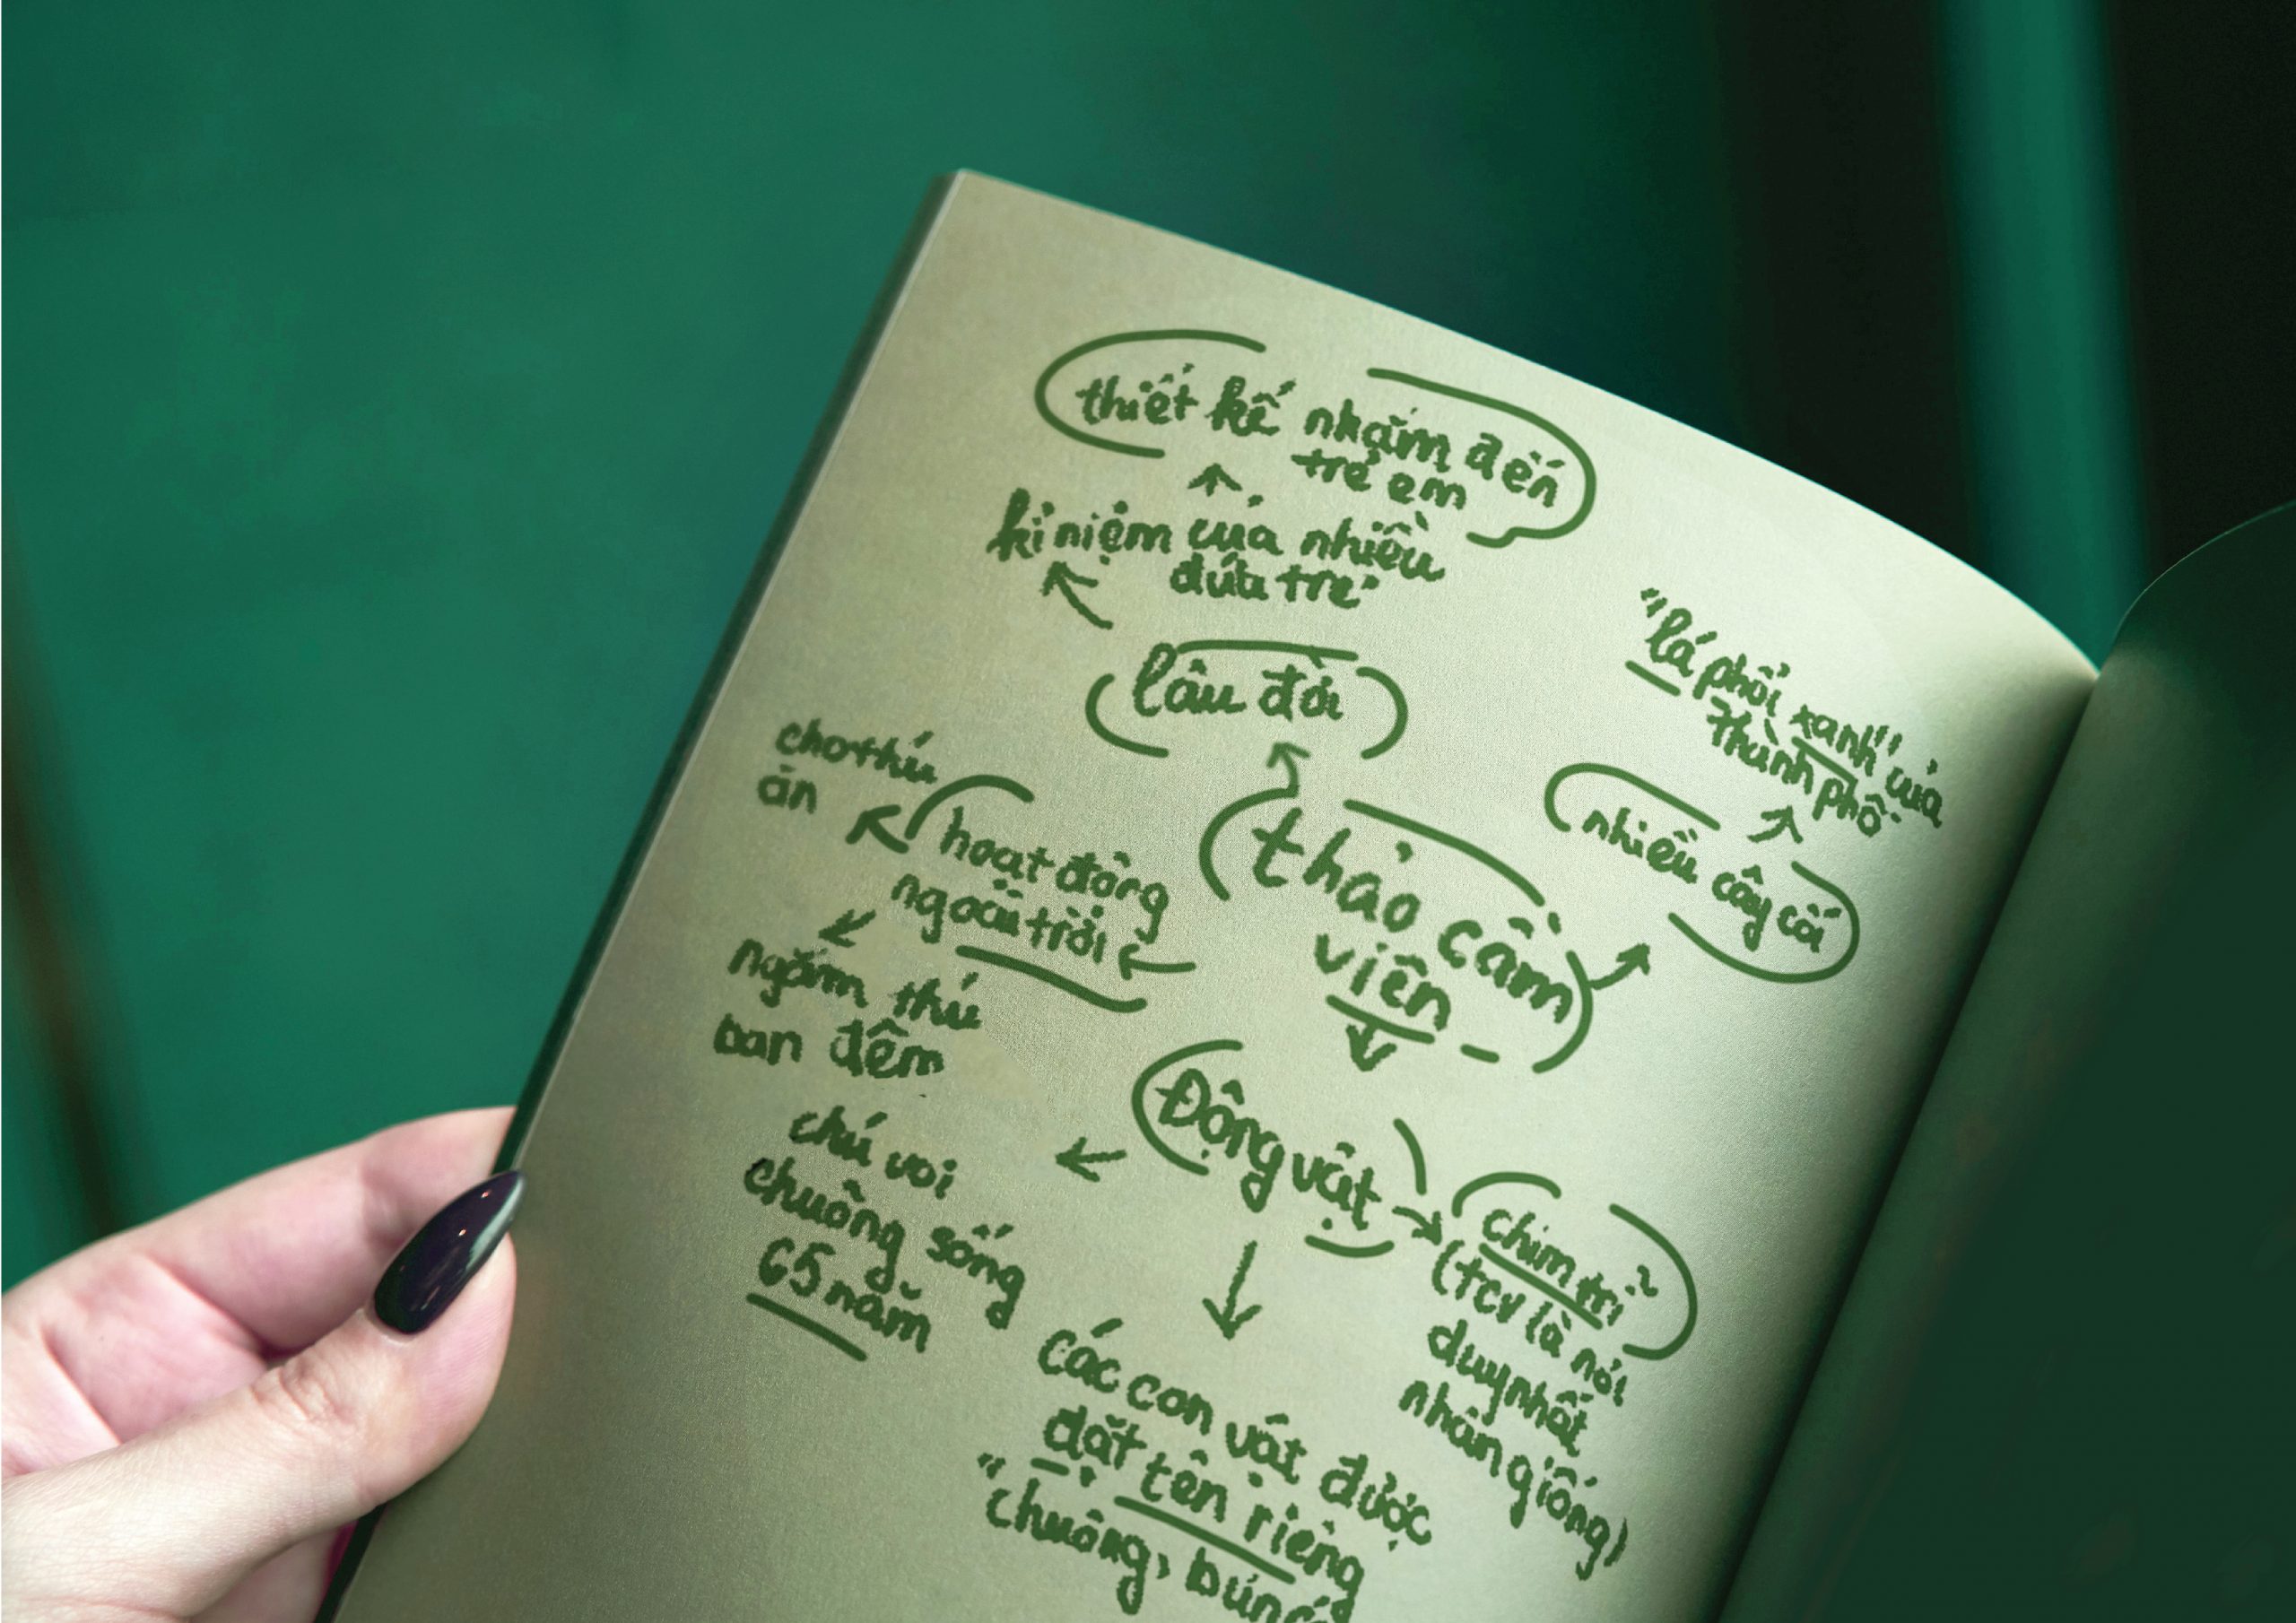 thiết kế nhắm đến
trẻ em
kỉ niệm của nhiều
đứa trẻ
lâu đời
"lá phổi xanh" của
thành phố
nhiều cây cối
cho thú
ăn
hoạt động
ngoài trời
thảo cầm
viên
ngắm thú
ban đêm
Động vật
chú voi
chuông sống
65 năm
chim trĩ
(tcv là nơi
duy nhất
nhân giống)
các con vật được
đặt tên riêng
"chuông,